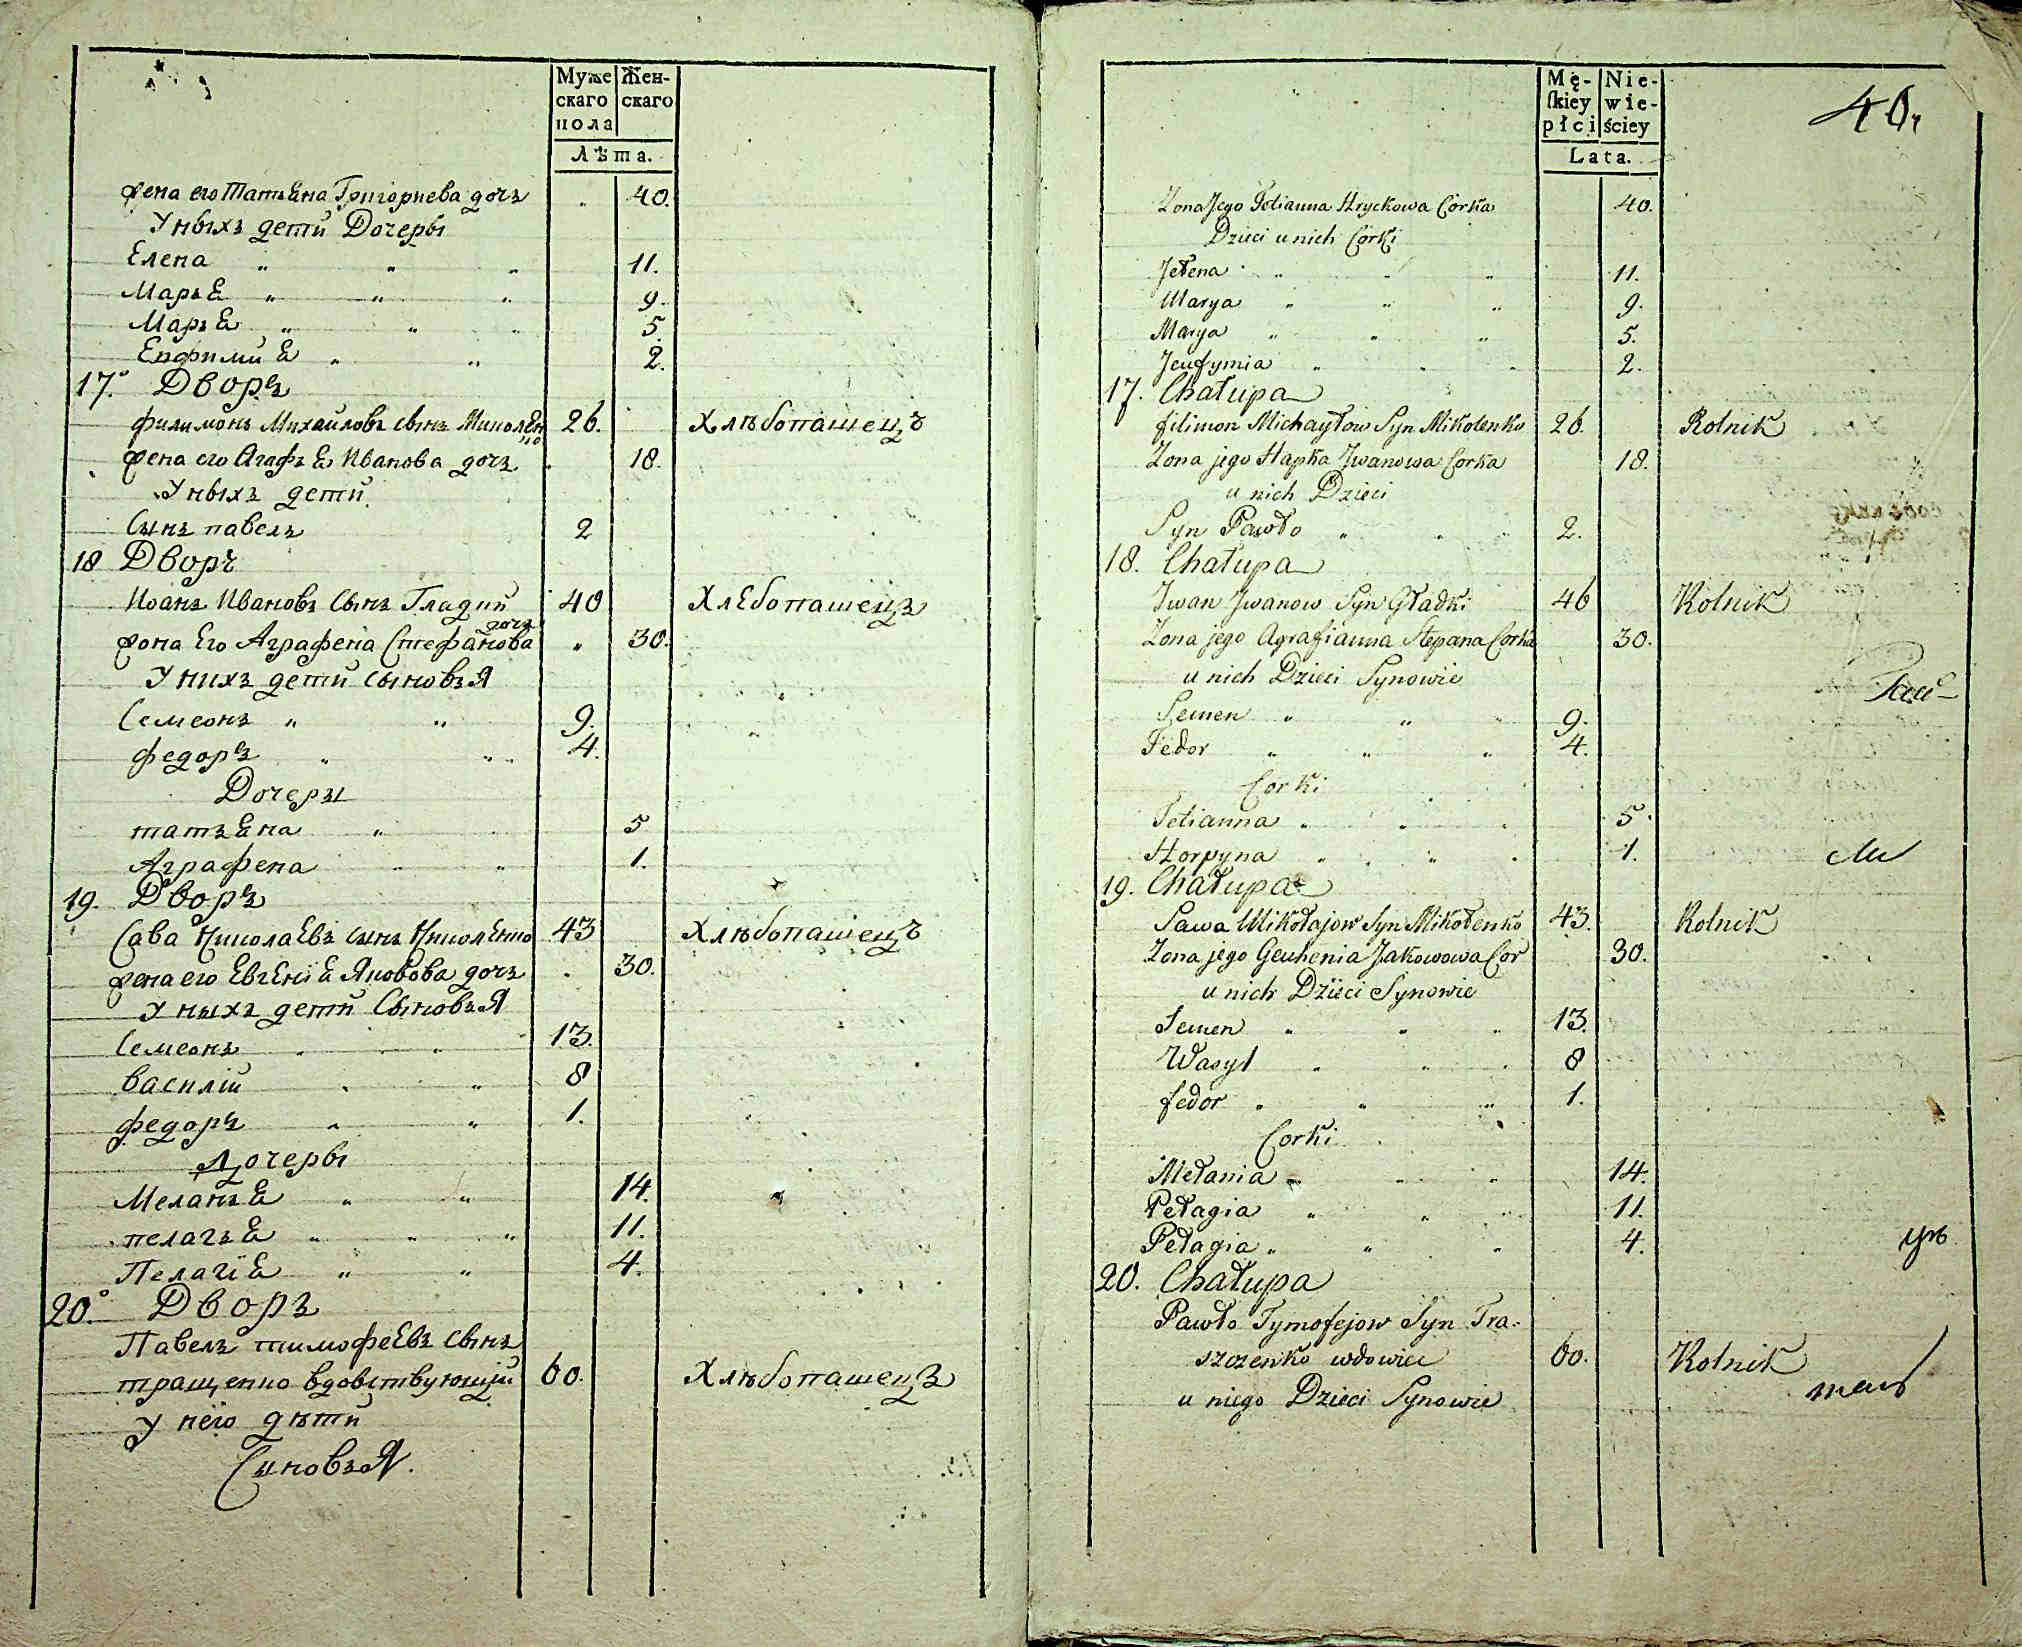 Муже Жен-
скаго скаго
пола
Лѣта.
жена его Татьѣна Григориева дочъ " 40.
У ныхъ дети Дочеры
Елена " " " 11.
Марьѣ " " " 9.
Марьѣ " " " 5.
Евфимиѣ " " 2.
17. Дворъ
филимонъ Михайловъ сынъ Миколѣн 26. Хлѣбопашецъ
ко
жена его Агафьѣ Иванова дочъ 18.
У ныхъ дети
Сынъ павелъ 2
18 Дворъ
Иоанъ Ивановъ сынъ Гладкий 40 Хлебопашецъ
дочъ
жона Его Аграфена Стефанова " 30.
У нихъ дети сыновъя
Семеонъ " " 9.
федоръ " " " 4.
Дочеры
татьѣна " 5
Аграфена 1.
19. Дворъ
Сава Николаевъ сынъ Николенко 43 Хлѣбопашецъ
жена его Евгениѣ Яковова дочъ 30.
У ныхъ дети Сыновъя
Семеонъ " " 13.
василий " " 8
федоръ " " 1.
Дочеры
Меланьѣ " " 14.
пелагьѣ " " " 11.
Пелагиѣ " " 4.
20. Дворъ
Павелъ тимофеевъ сынъ
тращенко вдовствующий 60. Хлѣбопашецъ
У него дѣти
Сыновъя.
Mę- Nie-
ſkiey wie-
płci ściey
Lata.
40.
Zona Jego Tetianna Hryckowa Corka 40.
Dzieci u nich Corki
Jełena " " " 11.
Marya " " " 9.
Marya " " " 5.
Jeufymia " " " 2.
17. Chałupa
filimon Michayłow Syn Mikolenko 26. Rolnik
Zona jego Hapka Jwanowa Corka 18.
u nich Dzieci
Syn Pawło " " " 2.
18. Chałupa
Jwan Jwanow Syn Gładki 46 Rolnik
Zona jego Agrafianna Stepana Corka 30.
u nich Dzieci Synowie
Semen " " " 9.
Fedor " " " 4.
Corki
Tetianna " " " 5.
Horpyna " " " 1.
19. Chałupa
Sawa Mikołajow Syn Mikołenko 43. Rolnik
Zona jego Geuhenia Jakowowa Cor 30.
u nich Dzieci Synowie
Semen " " " 13.
Wasyl " " " 8
fedor " " " 1.
Corki
Mełania " " " 14.
Pełagia " " " 11.
Pełagia " " " 4.
20. Chałupa
Pawło Tymofejow Syn Tra-
szczenko wdowiec 60. Rolnik
u niego Dzieci Synowie